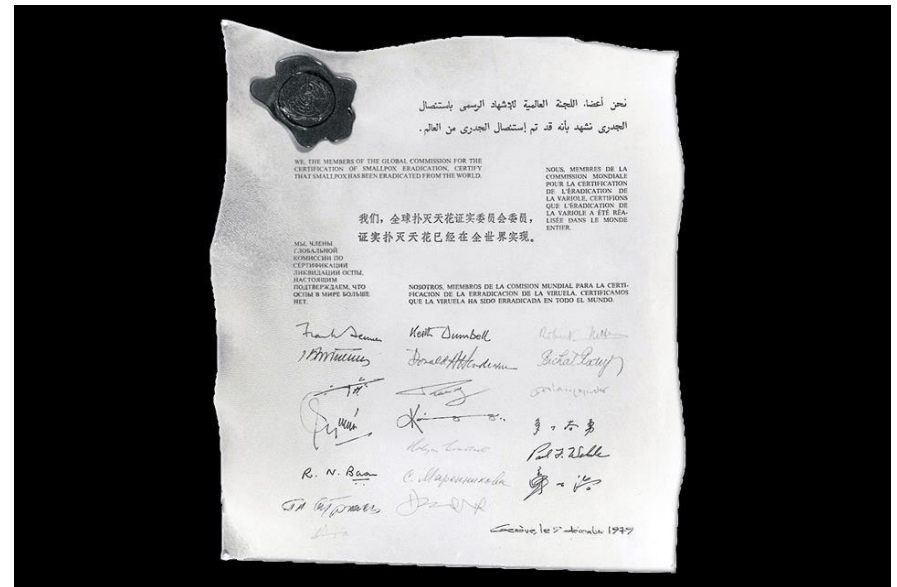 نحن أعضاء اللجنة العالمية للإشهاد الرسمى باستئصال
الجدرى نشهد بأنه قد تم إستئصال الجدرى من العالم.
WE, THE MEMBERS OF THE GLOBAL COMMISSION FOR THE
CERTIFICATION OF SMALLPOX ERADICATION, CERTIFY
THAT SMALLPOX HAS BEEN ERADICATED FROM THE WORLD.
NOUS, MEMBRES DE LA
COMMISSION MONDIALE
POUR LA CERTIFICATION
DE L'ÉRADICATION DE
LA VARIOLE, CERTIFIONS
QUE L'ÉRADICATION DE
LA VARIOLE A ÉTÉ RÉA-
LISÉE DANS LE MONDE
ENTIER.
我们，全球扑灭天花证实委员会委员，
证实扑灭天花已经在全世界实现。
МЫ, ЧЛЕНЫ
ГЛОБАЛЬНОЙ
КОМИССИИ ПО
СЕРТИФИКАЦИИ
ЛИКВИДАЦИИ ОСПЫ,
НАСТОЯЩИМ
ПОДТВЕРЖДАЕМ, ЧТО
ОСПЫ В МИРЕ БОЛЬШЕ
НЕТ.
NOSOTROS, MIEMBROS DE LA COMISION MUNDIAL PARA LA CERTI-
FICACIÓN DE LA ERRADICACION DE LA VIRUELA, CERTIFICAMOS
QUE LA VIRUELA HA SIDO ERRADICADA EN TODO EL MUNDO.
Frank Fenner Keith Dumbell
Donald A Henderson
Paul F. Wehrle
R. N. Basu С. Маренникова
Genève, le 9 décembre 1979